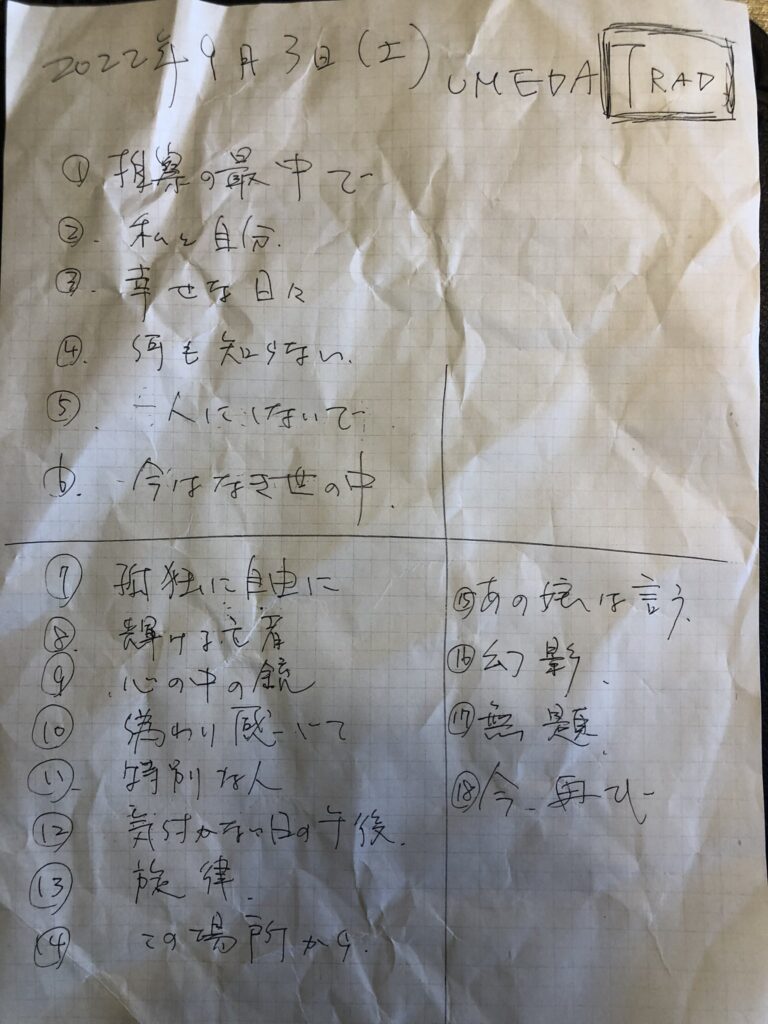 2022年9月3日(土) UMEDA TRAD
① 推察の最中で
②. 私と自分.
③. 幸せな日々
④. 何も知らない.
⑤. 一人にしないで
⑥. 今はなき世の中.
⑦ 孤独に自由に
⑧. 輝ける亡者
⑨ .心の中の銃
⑩ 偽わり感じて
⑪. 特別な人
⑫ 気付かない日の午後.
⑬ 旋律.
⑭ この場所から.
⑮あの娘は言う.
⑯幻影.
⑰無題.
⑱今、再び